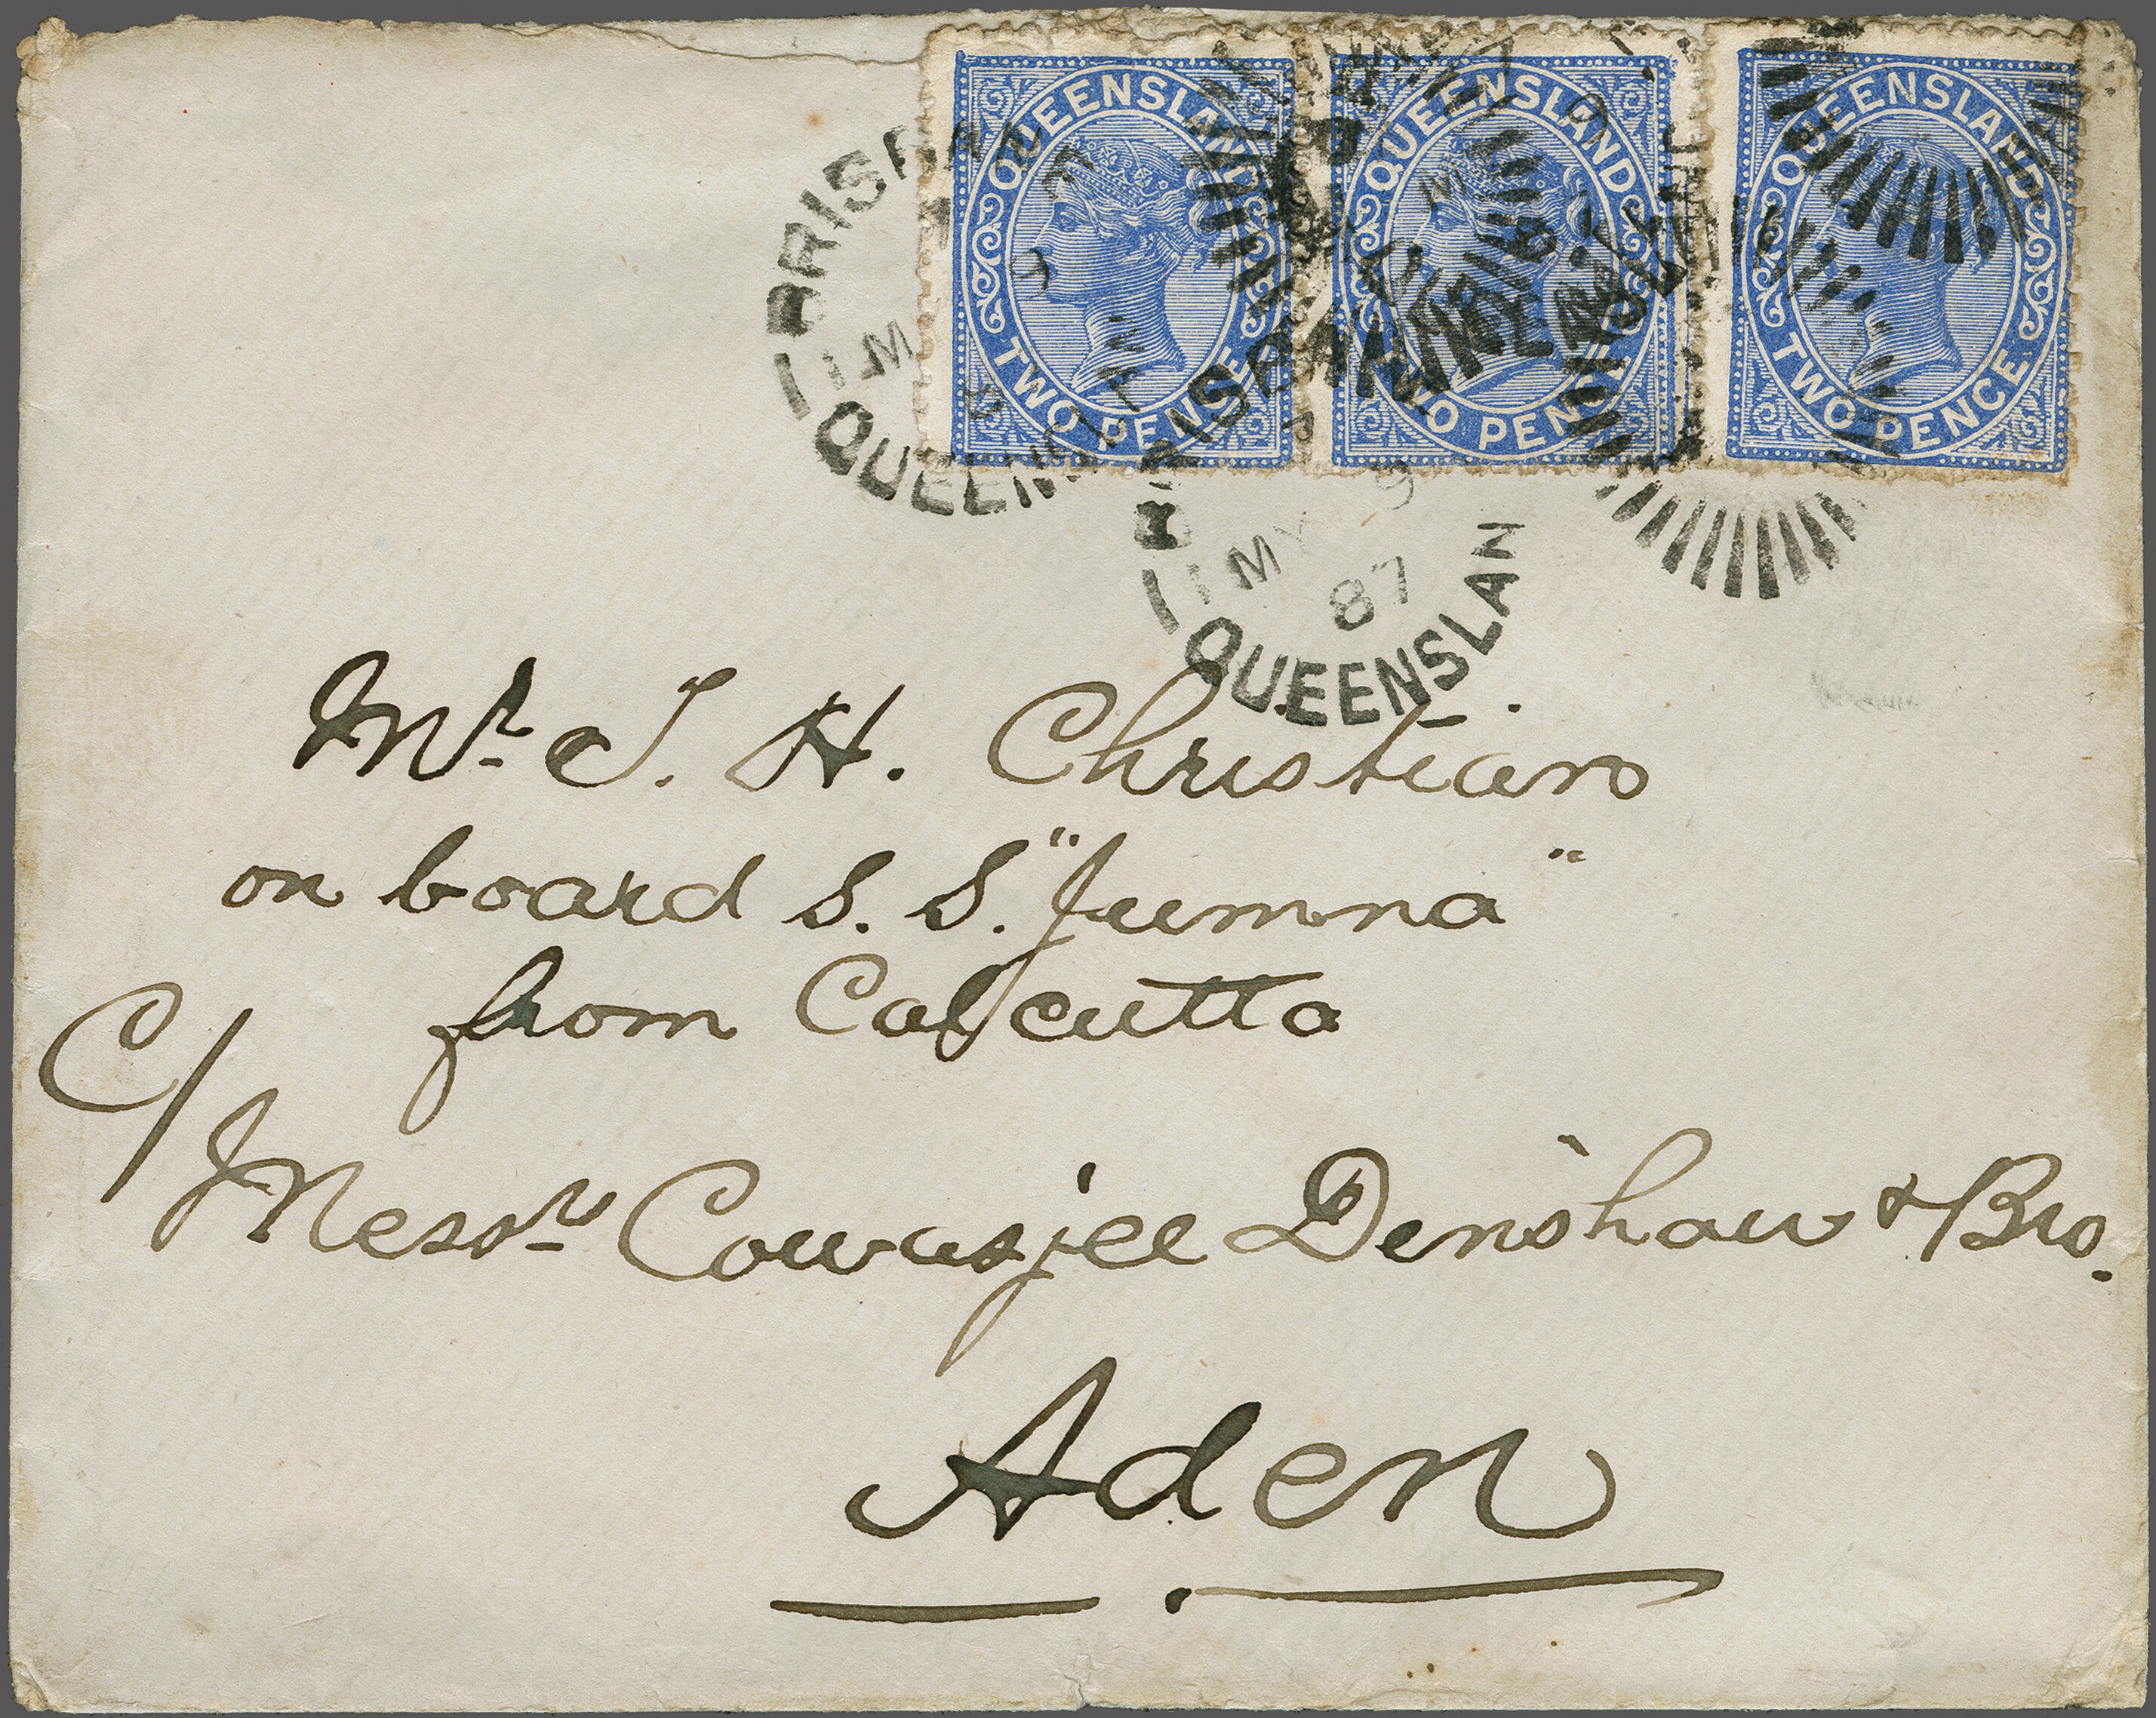 QUEENSLAND
TWO PENCE
QUEENSLAND
TWO PENCE
QUEENSLAND
TWO PENCE
BRISBAN
QUEENSLAN
BRISBAN
MY 9
87
QUEENSLAN
Mr. J. H. Christian
on board S. S. "Jumna"
from Calcutta
C/
Messrs Cowasjee Denshaw & Bro.
Aden